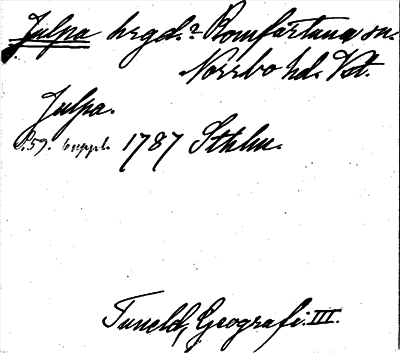 Julpa hrgd.? Romfartuna sn.
Norrbo hd. Vst.
Julpa.
S. 59. 6 uppl. 1787 Sthlm.
Tuneld, Geografi. III.